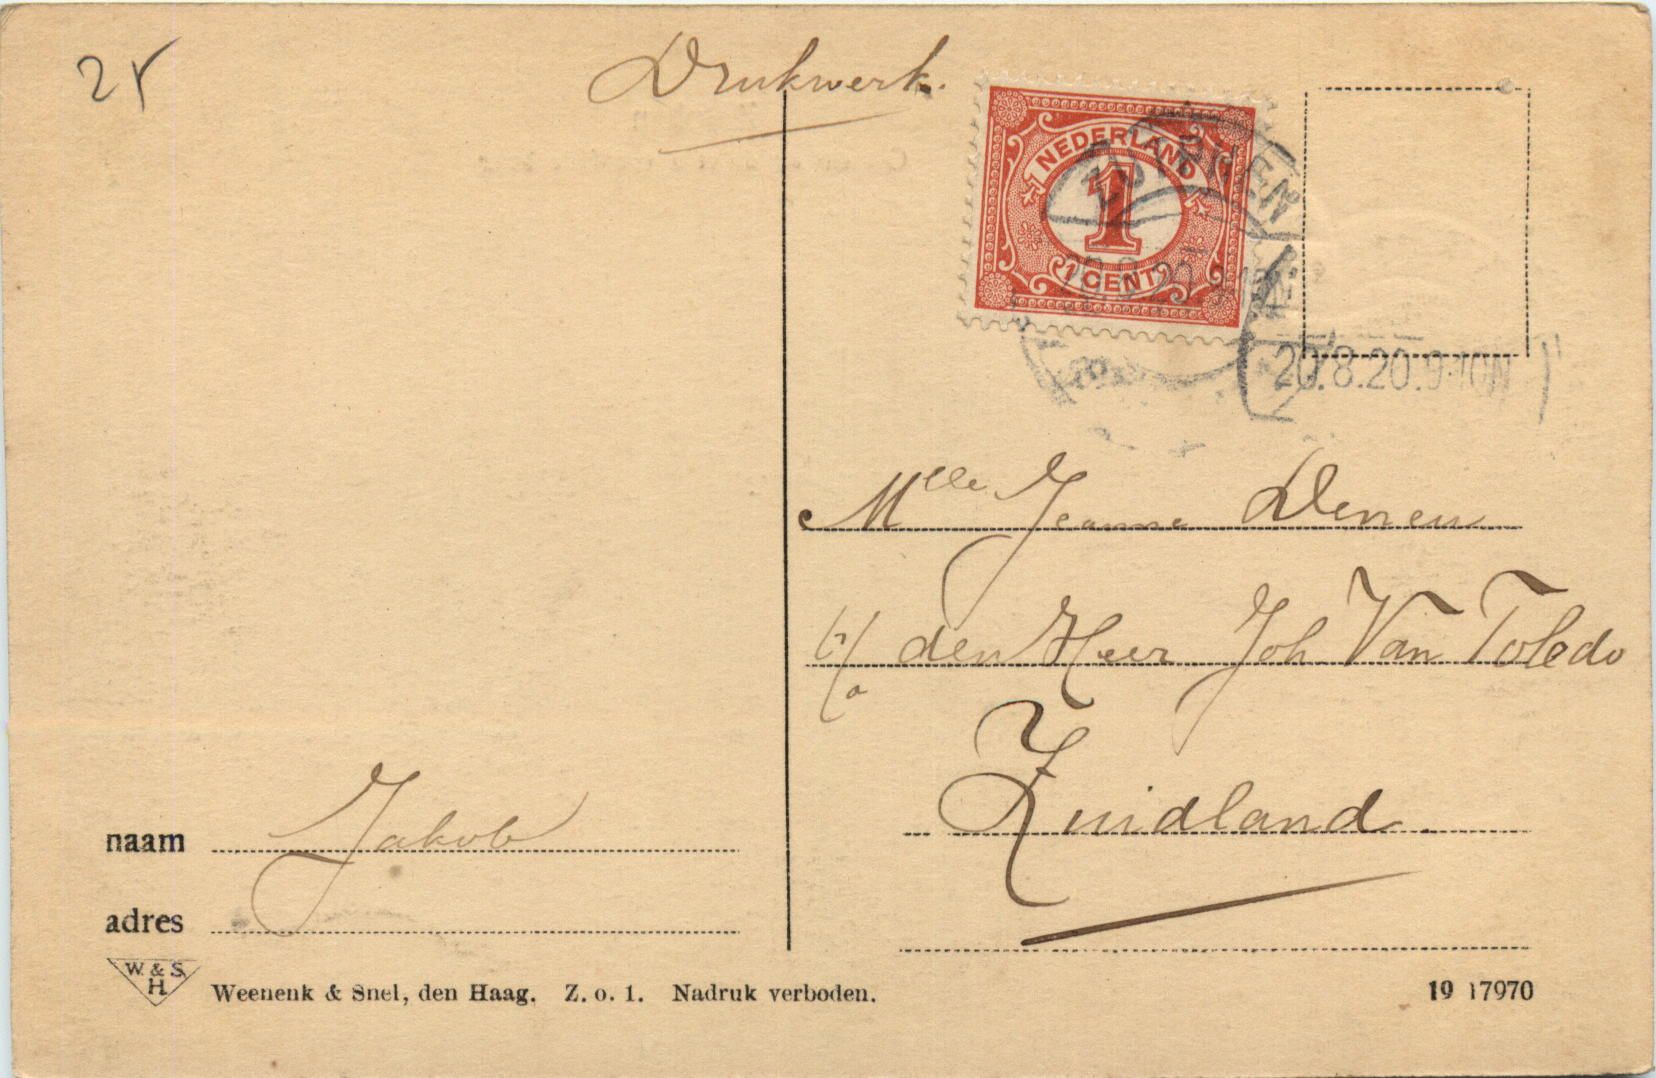 25
Drukwerk.
NEDERLAND
1
1 CENT
ZUTPHEN
20.8.20.9-10N
Mlle Jeanne Denen
c/o den Heer Joh Van Toledo
Zuidland.
naam Jakob
adres
W. & S.
H.
Weenenk & Snel, den Haag. Z. o. 1. Nadruk verboden.
19 17970